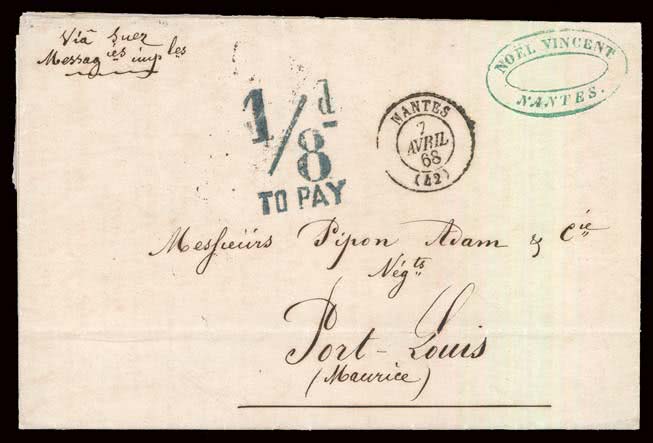 Viâ Suez
Messag^iés imp^les
NOËL VINCENT
NANTES.
1/8^d
TO PAY
NANTES
7
AVRIL
68
(42)
Messieürs Pipon Adam & C^ie
Nég^ts
Port-Louis
(Maurice)